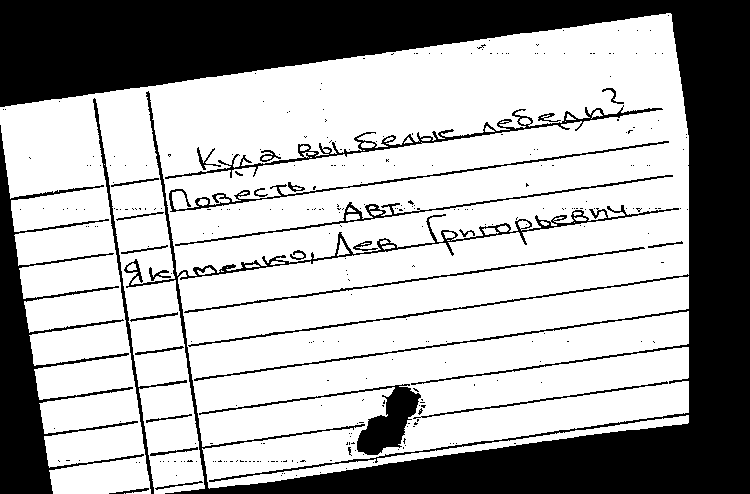 Куда вы, белые лебеди?
Повесть.
Авт.:
Якименко, Лев Григорьевич.